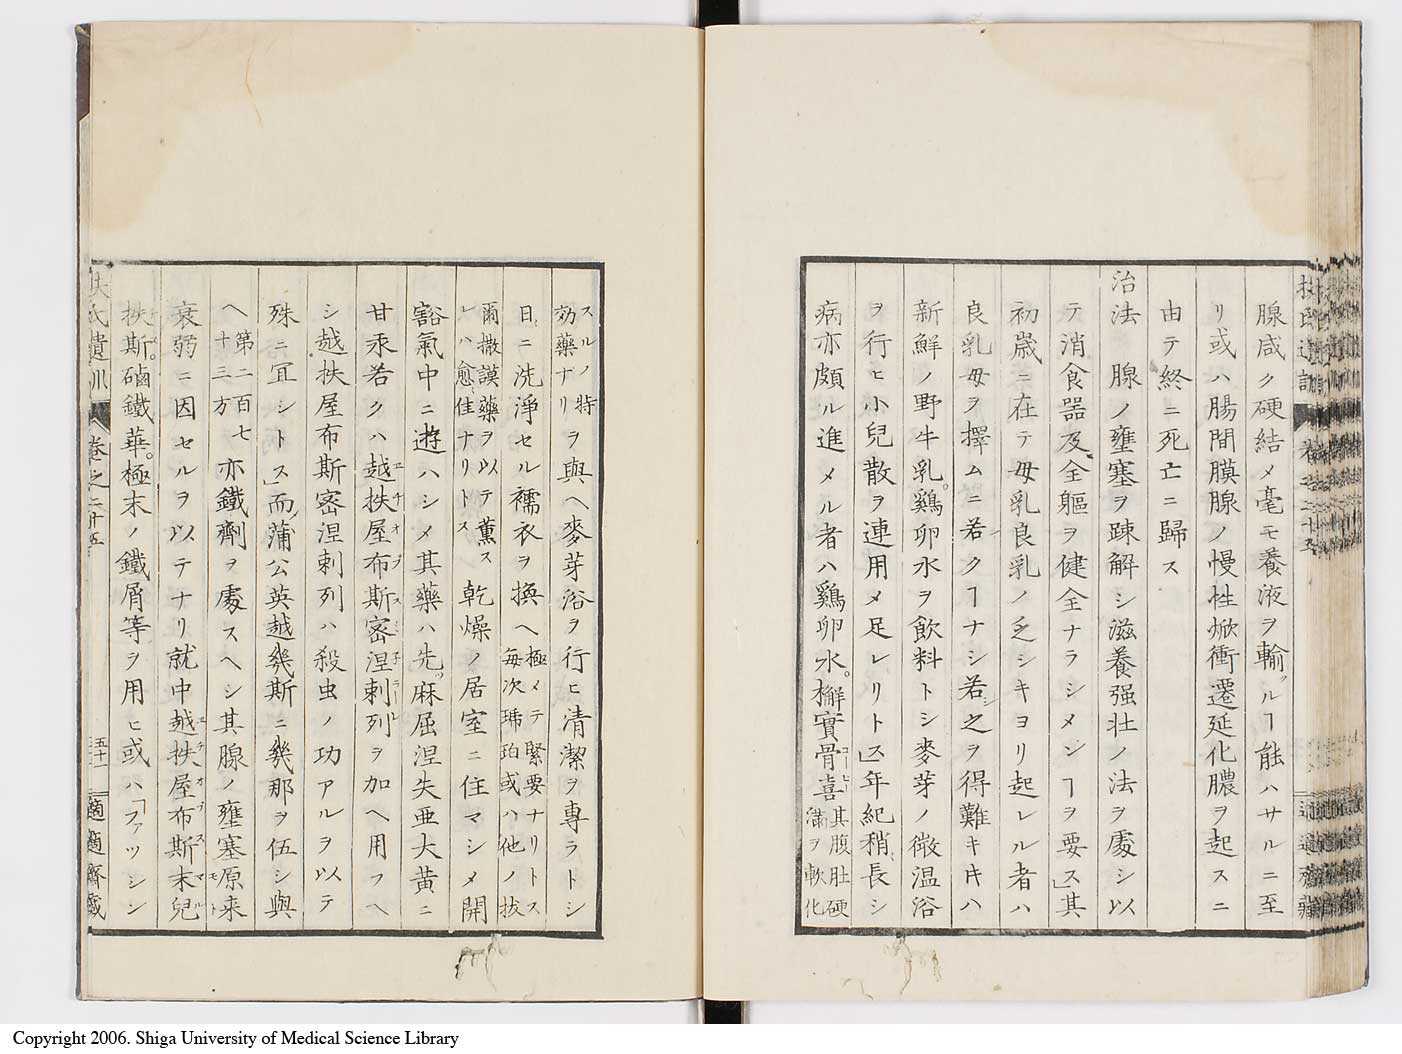 腺咸ク硬結メ毫モ養液ヲ輸ルヿ能ハサルニ至
リ或ハ腸間膜腺ノ慢性焮衝遷延化膿ヲ起スニ
由テ終ニ死亡ニ歸ス
治法 腺ノ壅塞ヲ疎解シ滋養强壮ノ法ヲ處シ以
テ消食器及全軀ヲ健全ナラシメンヿヲ要ス」其
初歳ニ在テ母乳良乳ノ乏シキヨリ起レル者ハ
良乳母ヲ擇ムニ若クヿナシ若シ之ヲ得難キ𪜈ハ
新鮮ノ野牛乳。鷄卵水ヲ飲料トシ麥芽ノ微温浴
ヲ行ヒ小兒散ヲ連用メ足レリトス」年紀稍長シ
病亦頗ル進メル者ハ鷄卵水。槲實骨喜
其腹肚硬
滿ヲ軟化
スルノ特
効藥ナリ
ヲ與ヘ麥芽浴ヲ行ヒ清潔ヲ專ラトシ
日ニ洗淨セル襦衣ヲ換ヘ
極メテ緊要ナリトス
毎次琥珀或ハ他ノ拔
爾撒謨藥ヲ以テ薫ス
レハ愈佳ナリトス
乾燥ノ居室ニ住マシメ開
豁氣中ニ遊ハシメ其藥ハ先ツ麻屈涅失亜大黄ニ
甘汞若クハ越扶屋布斯密涅刺列ヲ加ヘ用フヘ
シ越扶屋布斯密涅刺列ハ殺虫ノ功アルヲ以テ
殊ニ宜シトス」而蒲公英越幾斯ニ幾那ヲ伍シ與
ヘ
第二百七
十三方
亦鐵劑ヲ處スヘシ其腺ノ壅塞原来
衰弱ニ因セルヲ以テナリ就中越扶屋布斯末兒
扶斯。磠鐵華。極末ノ鐵屑等ヲ用ヒ或ハ「ファッシン
扶氏遺訓 卷之二十五
五十一
適適齋藏